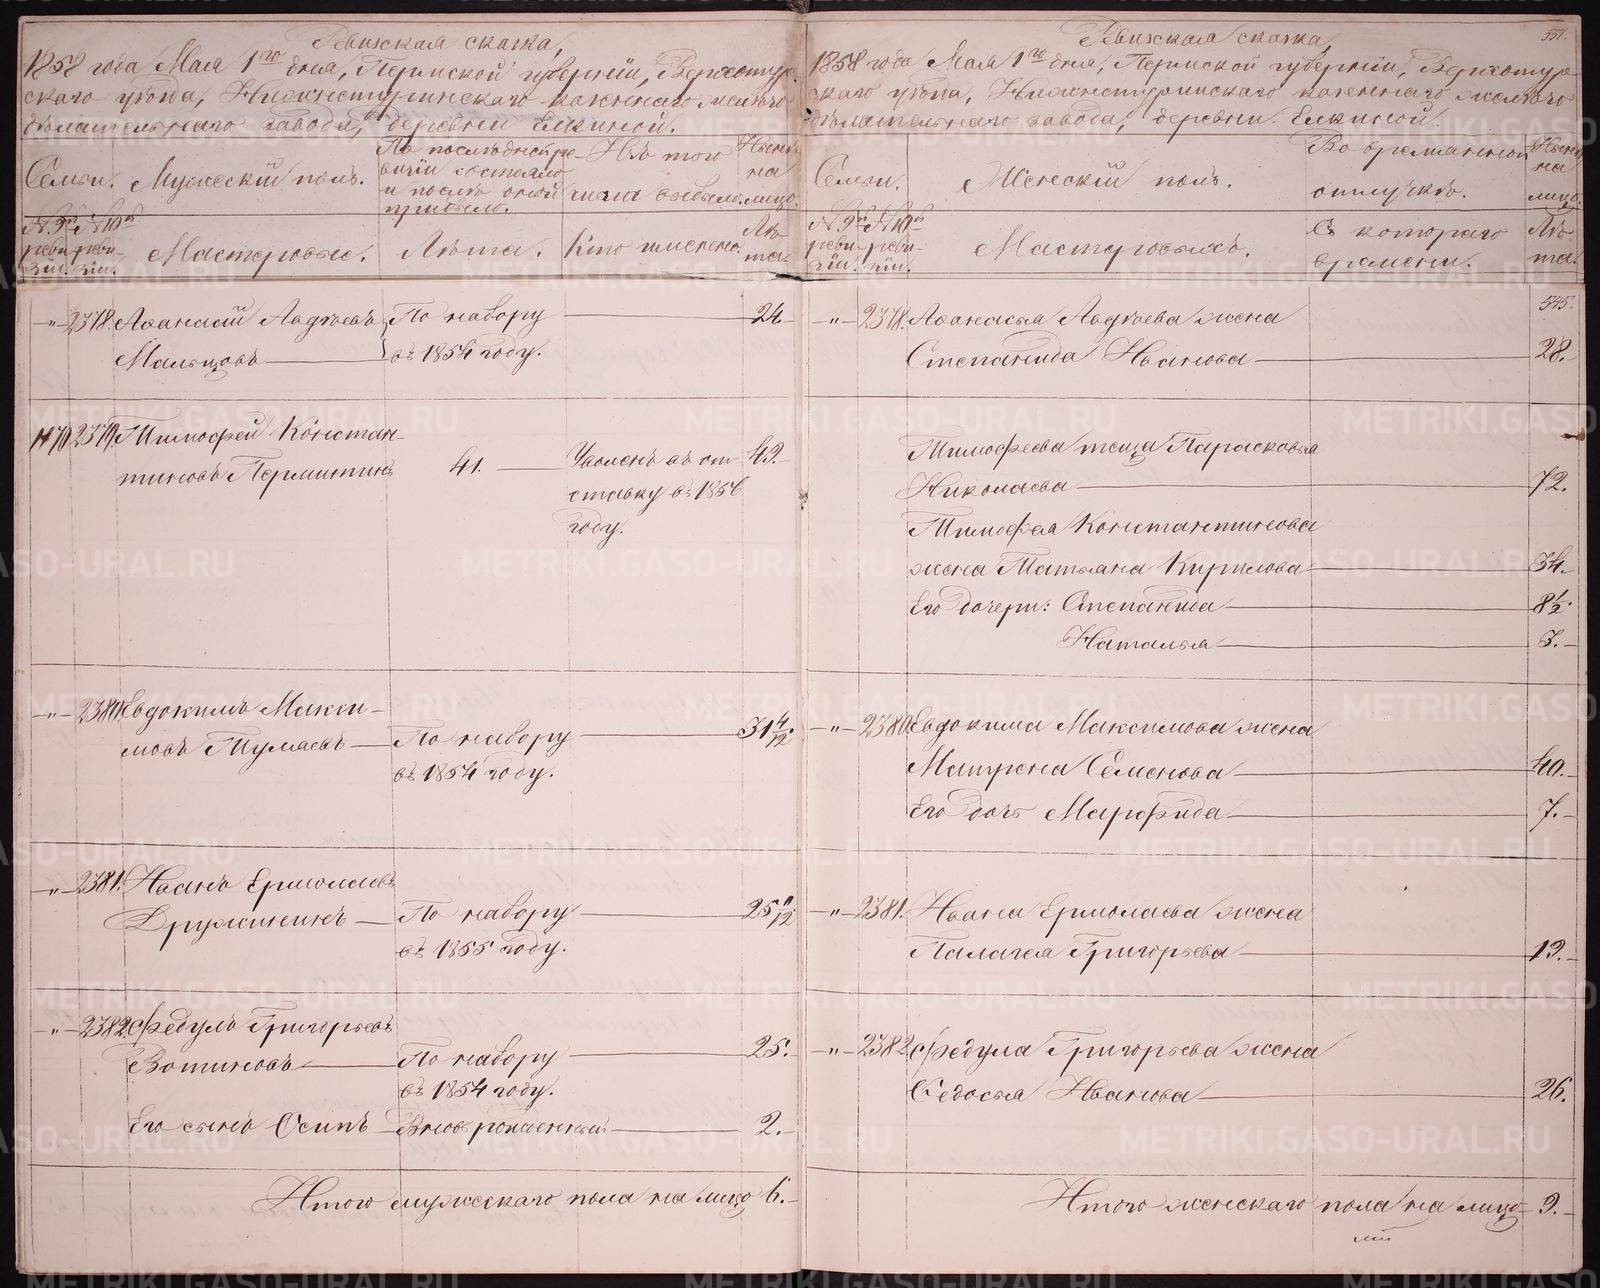 Ревизская сказка,
1858 года Мая 1го дня, Пермской губернiи, Верхотур-
скаго уѣзда, Нижнетуринскаго казеннаго желѣзо-
дѣлательнаго завода, деревни Елкиной.
Семьи. Мужескiй полъ. По послѣдней ре-
визiи состояло
и послѣ оной
прибыло. Изъ того
числа выбыло. Нынѣ
на
лицо.
№ 9й
реви-
зiи. № 10й
реви-
зiи. Мастеровые. Лѣта. Кто именно. Лѣ-
та.
-"- 2378. Аѳанасiй Авдѣевъ По набору 24.
Мальцовъ въ 1854 году.
1170 2379. Тимофей Констан-
тиновъ Пермитинъ 41. Уволенъ въ от- 49.
ставку въ 1856
году.
-"- 2380. Евдокимъ Макси-
мовъ Тумаевъ По набору 31 4/12.
въ 1854 году.
-"- 2381. Иванъ Ермолаевъ
Дружининъ По набору 25 11/12
въ 1855 году.
-"- 2382. Федулъ Григорьевъ
Вотиновъ По набору 25.
въ 1854 году.
Его сынъ Осипъ Вновь рожденный 2.
Итого мужескаго пола на лицо 6.
Ревизская сказка, 551.
1858 года Мая 1го дня, Пермской губернiи, Верхотур-
скаго уѣзда, Нижнетуринскаго казеннаго желѣзо-
дѣлательнаго завода, деревни Елкиной.
Семьи. Женскiй полъ. Во временной
отлучкѣ. Нынѣ
на
лицо.
№ 9й
реви-
зiи. № 10й
реви-
зiи. Мастеровыхъ. Съ котораго
времени. Лѣ-
та.
545.
-"- 2378. Аѳанасья Авдѣева жена
Степанида Иванова 28.
Тимофеева теща Парасковья
Николаева 72.
Тимофея Константинова
жена Татьяна Кирилова 34.
Его дочери: Степанида 8 1/2.
Наталья 3.
-"- 2380. Евдокима Максимова жена
Матрена Семенова 40.
Его дочь Марфида 7.
-"- 2381. Ивана Ермолаева жена
Палагея Григорьева 19.
-"- 2382. Федула Григорьева жена
Федосья Иванова 26.
Итого женскаго пола на лицо 9.
METRIKI.GASO-URAL.RU